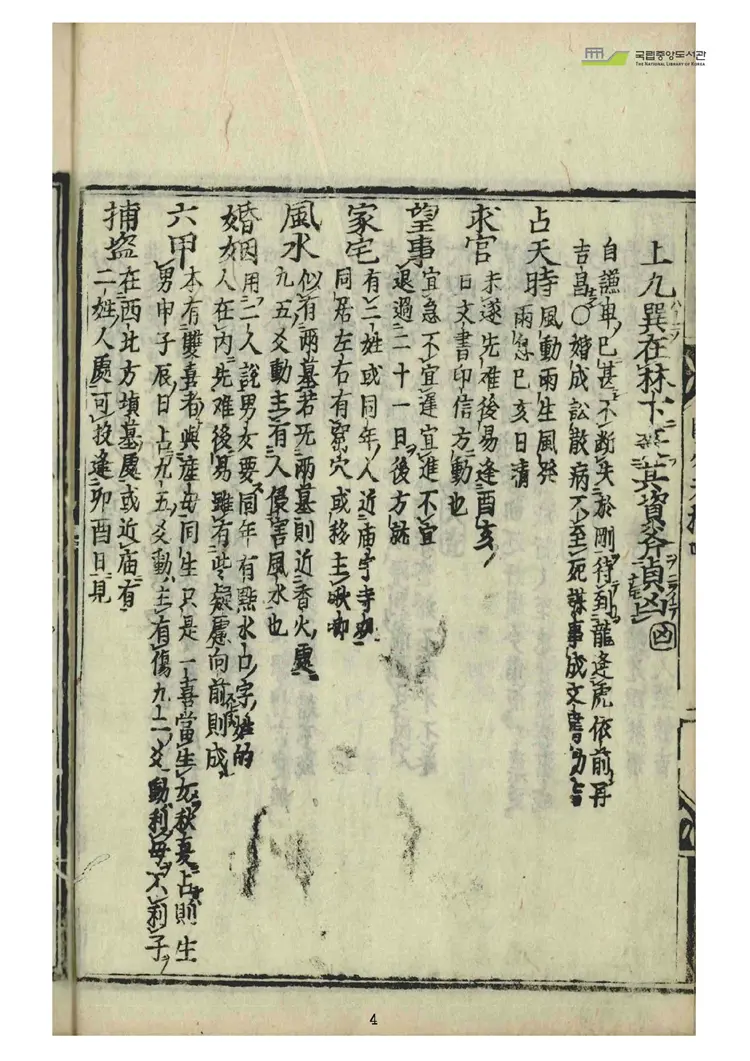 국립중앙도서관
THE NATIONAL LIBRARY OF KOREA
上九巽在牀下喪其資斧貞凶 凶
自謙卑巳甚不斷失於剛待到龍逢虎依前再
吉昌○婚成訟散病不至死謀事成文書
占天時
風動雨生風發
雨息巳亥日清
求官
未遂先难後易逢酉亥
日文書印信方動也
望事
宜急不宜遲宜進不宜
退過二十一日後方
家宅
有三姓或同年人近庙宇寺
同居左右有窯穴或移主
風水
似有兩墓若死兩墓則近香火處
九五爻動主有人侵害風水也
婚姻
用二人說男女要同年有點水口字姓的
女人在内先难後易雖有些疑慮向前則成
六甲
本有雙喜者與產母同生只是一喜當生女秋夏占則生
男申子辰日占九五爻動主有傷九二爻動利母不利子
捕盗
在西北方墳墓處或近庙有
二姓人處可投逢卯酉日見
4